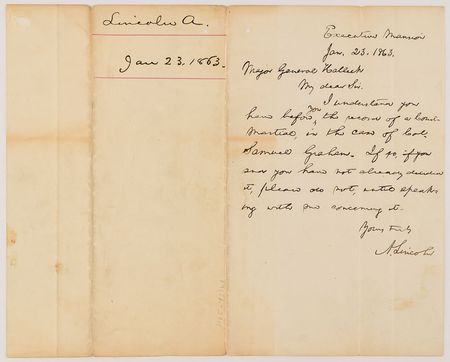 Lincoln A.
Jan 23. 1863.
Executive Mansion
Jan. 23. 1863.
Major General Halleck
My dear Sir.
I understand you
have before you, the record of a Court
Martial, in the case of Col.
Samuel Graham. If so, if you
and you have not already decided
it, please do not, until speak
ing with me concerning it.
Yours truly
A. Lincoln